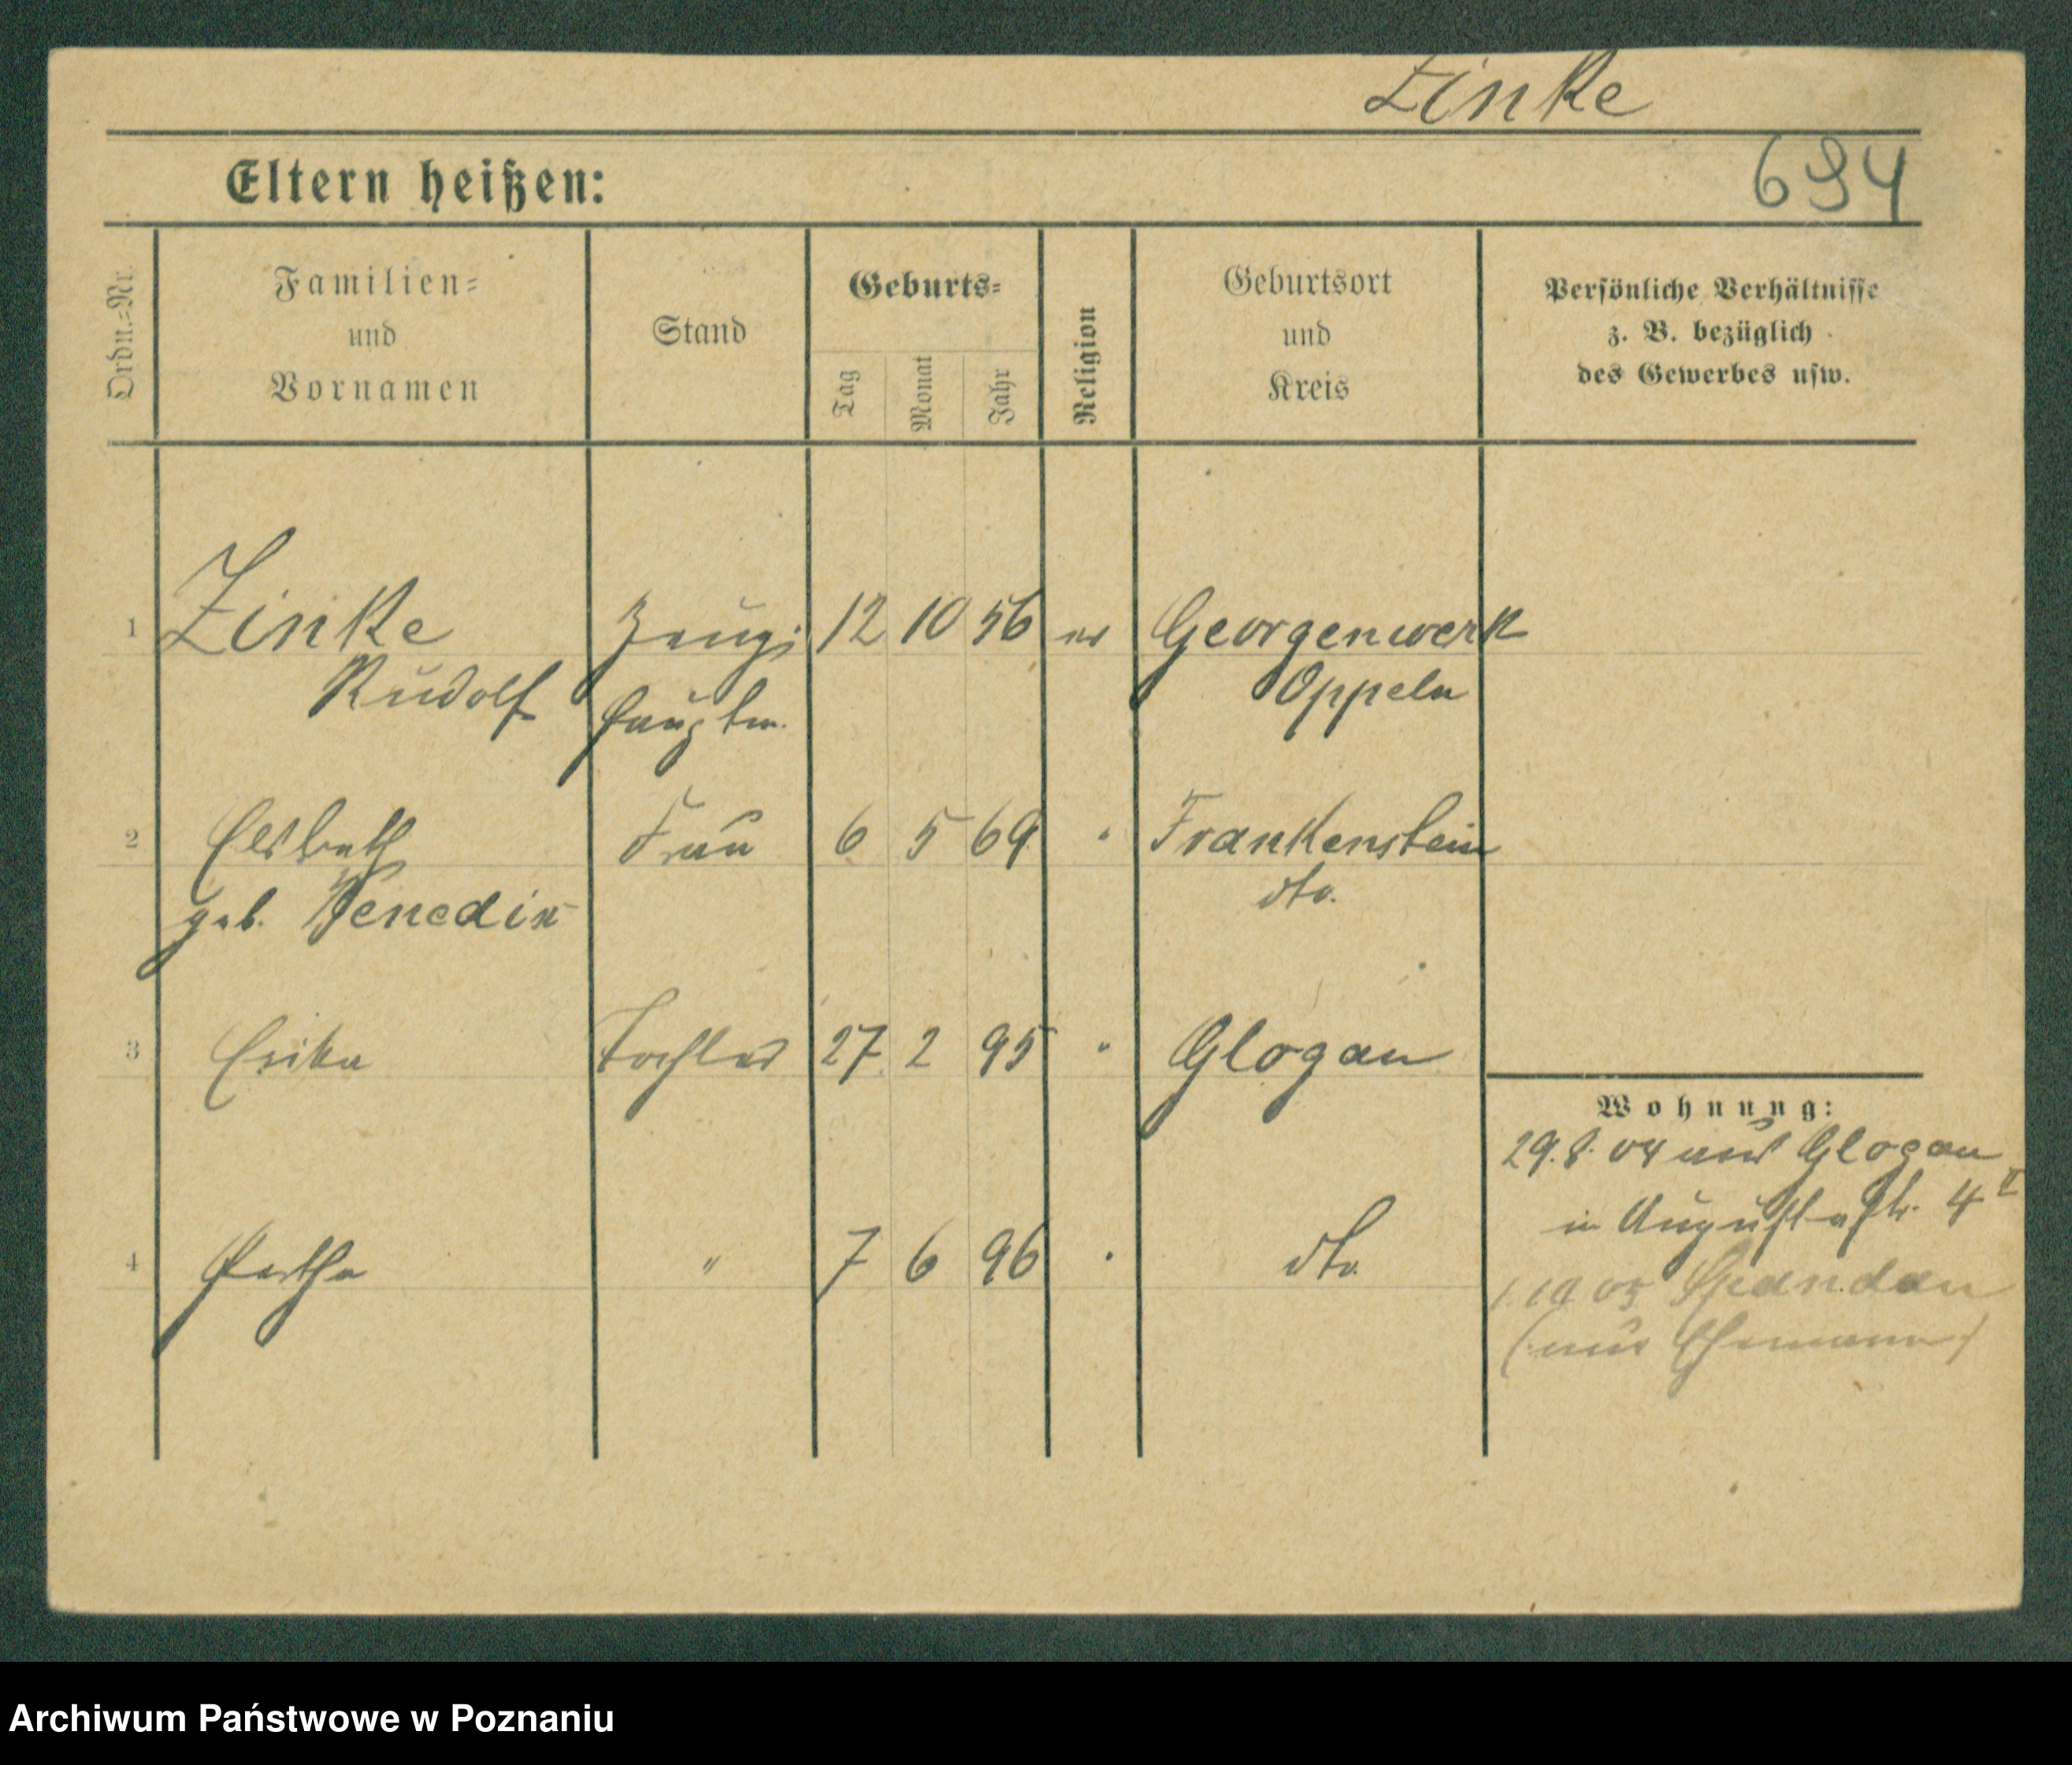 Zinke
Eltern heißen:
694
Ordn.-Nr.
Familien-
und
Vornamen
Stand
Geburts-
Tag
Monat
Jahr
Religion
Geburtsort
und
Kreis
Persönliche Verhältnisse
z. B. bezüglich
des Gewerbes usw.
1 Zinke Zeug- 12 10 56 ev Georgenwerk
Rudolf hauptm. Oppeln
2 Elsbeth Frau 6 5 69 " Frankenstein
geb. dto.
3 Erika Tochter 27 2 95 " Glogau
Wohnung:
29.8.04 aus Glogau
in Augustastr. 4 II
4 Hertha " 7 6 96 " dto.
1.10.05 Spandau
(nur Ehemann)
Archiwum Państwowe w Poznaniu